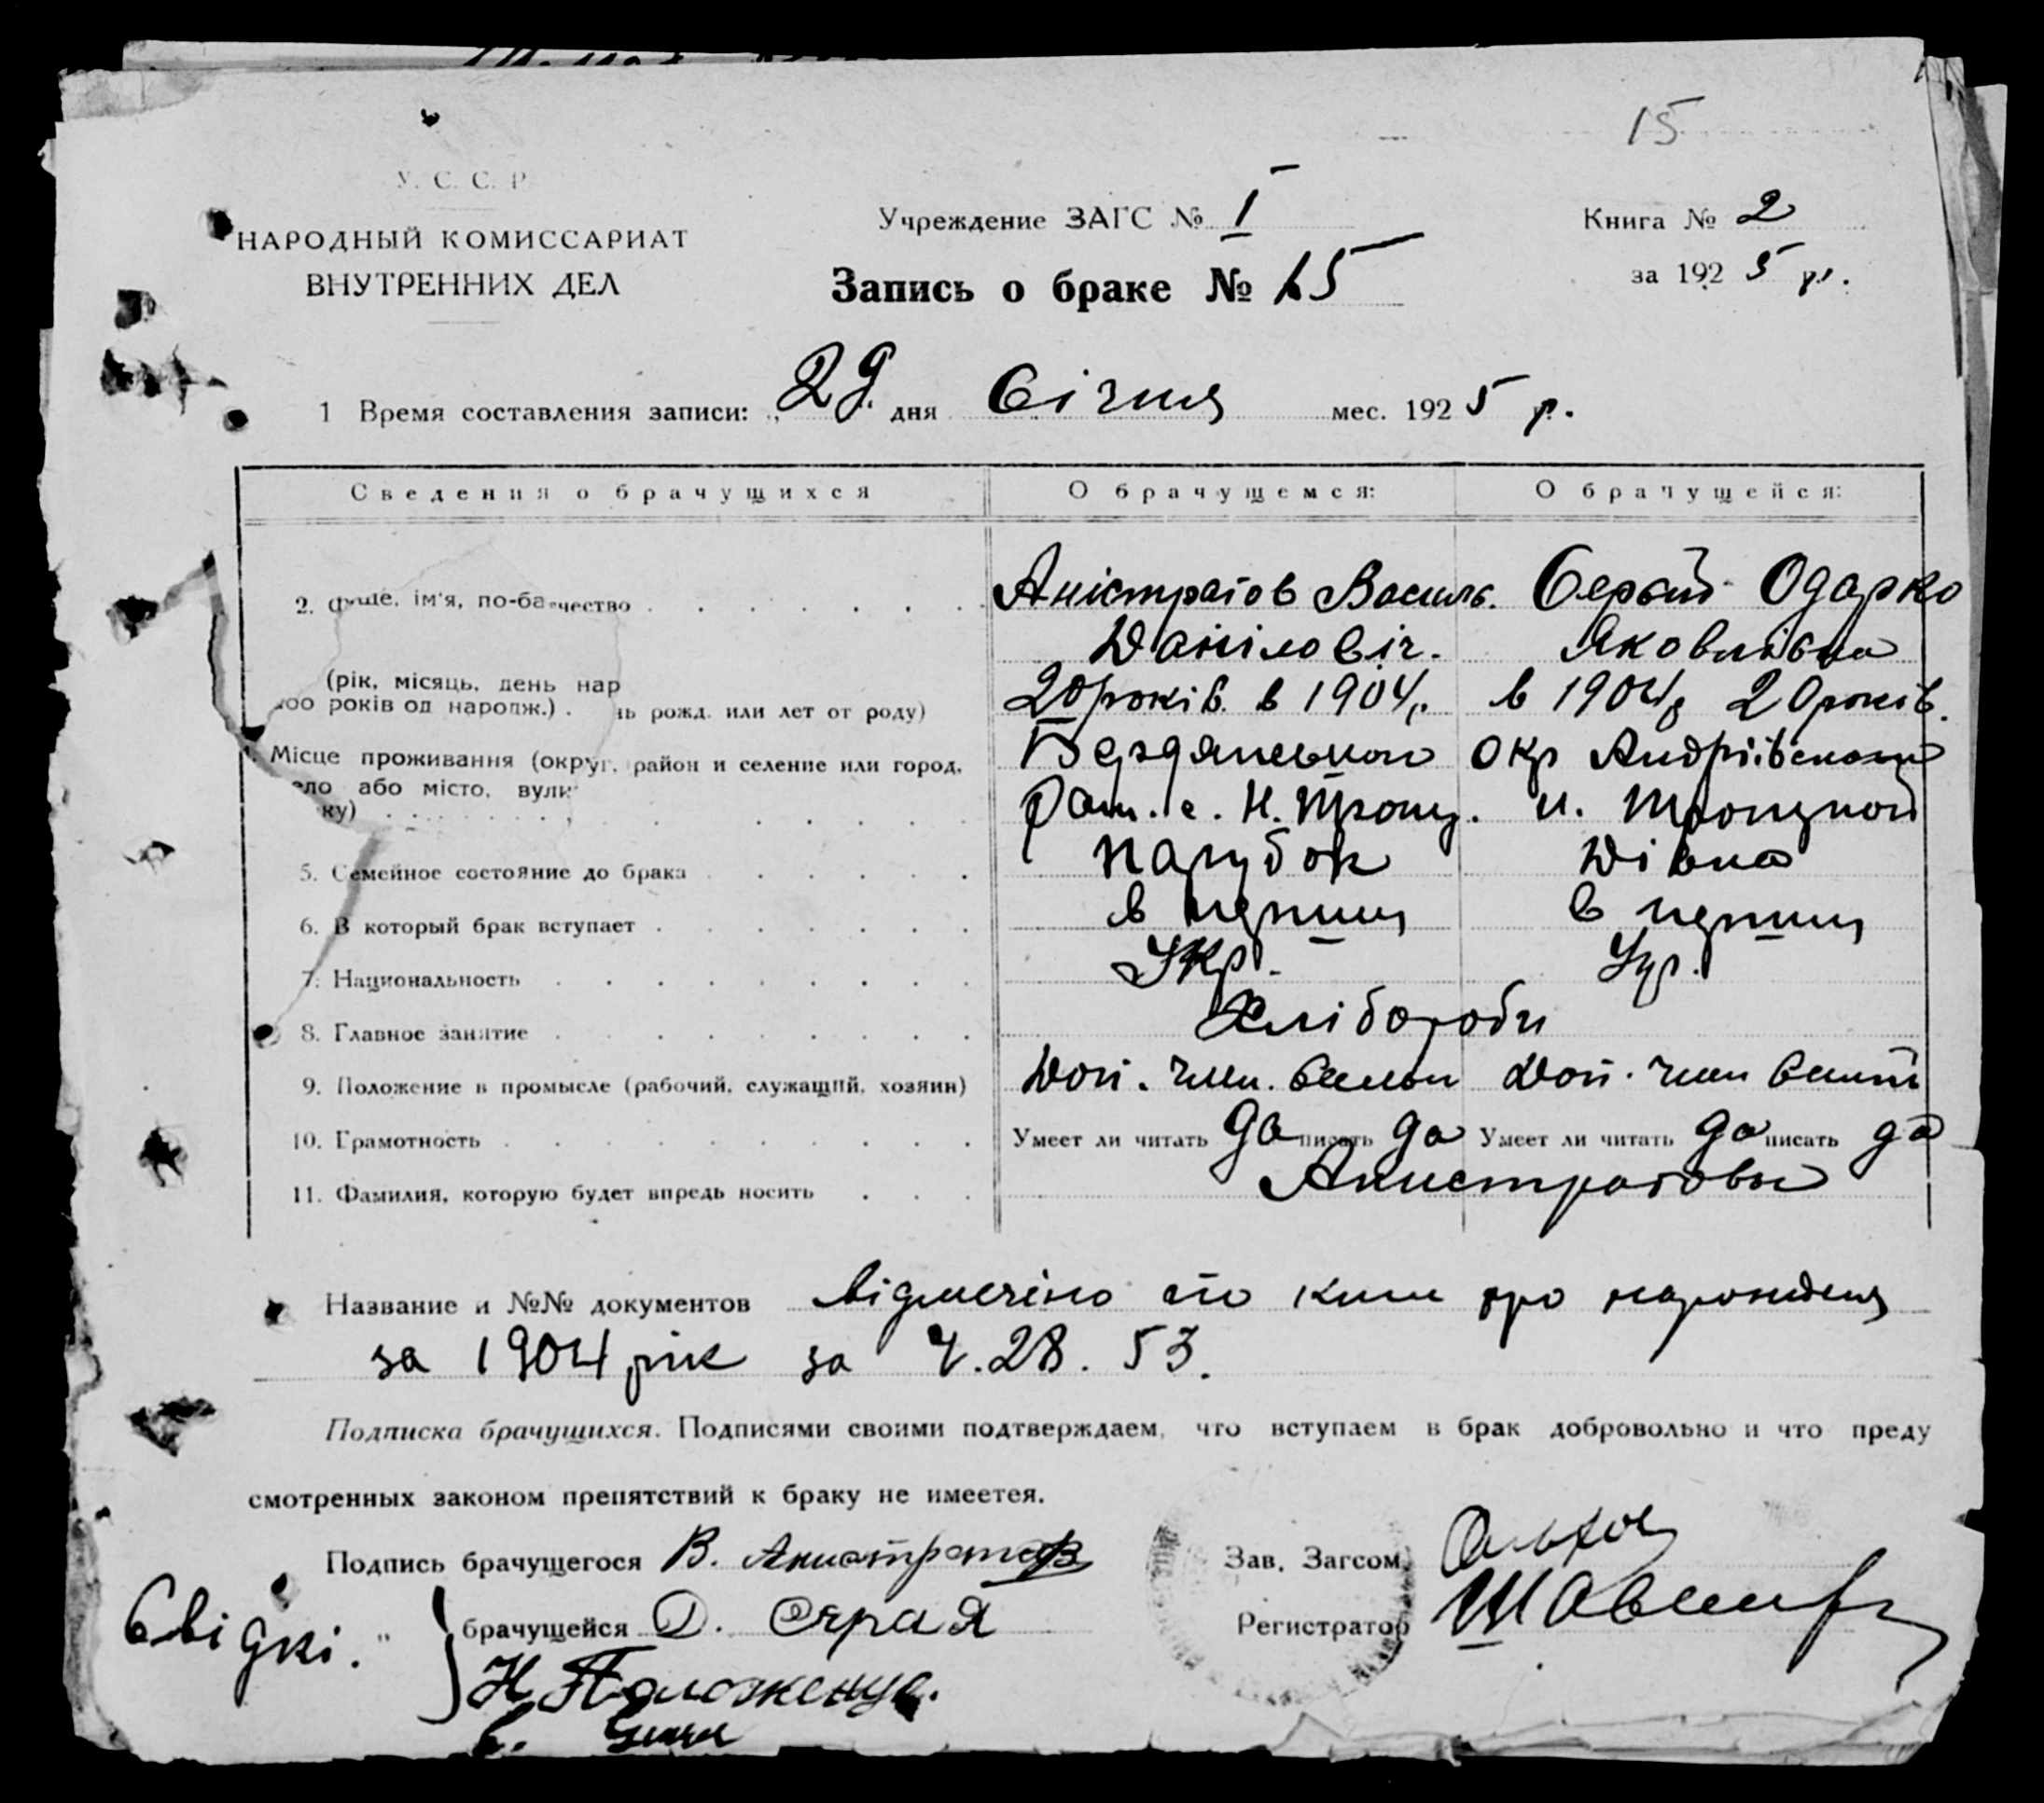 15
У. С. С. Р
НАРОДНЫЙ КОМИССАРИАТ
ВНУТРЕННИХ ДЕЛ
Учреждение ЗАГС № I
Книга № 2
Запись о браке № 15
за 1925 р.
1 Время составления записи: „29" дня Січня мес. 1925 р.
Сведения о брачущихся О брачущемся: О брачущейся:
2. ім'я, по-ба чество Аністратов Василь. Сердой Одарка
Даніловіч. Яковлівна
(рік, місяць, день нар
років од народж.) . нь рожд. или лет от роду) 20 років. в 1904 р. в 1904 р 20 років.
Місце проживання (округ, район и селение или город, Бердянськой Окр Андріївського
село або місто, вули Рай. с. Н. Троиц. Н. Троицкой
ку)
5. Семейное состояние до брака Парубок Дівка
6. В который брак вступает в перший в перший
7. Национальность Укр. Укр.
8. Главное занятие Хлібороби
9. Положение в промысле (рабочий, служащий, хозяин) Доп. член. семьи Доп. член семьи
10. Грамотность Умеет ли читать да писать да Умеет ли читать да писать да
11. Фамилия, которую будет впредь носить Анистратовы
Название и №№ документов Відмечено по книги про народження
за 1904 рік за Ч. 28. 53.
Подписка брачущихся. Подписями своими подтверждаем, что вступаем в брак добровольно и что преду
смотренных законом препятствий к браку не имеется.
Подпись брачущегося В. Анистратов
Зав. Загсом
Свідкі. " брачущейся Д. Серая
Регистратор
Н Положенце.